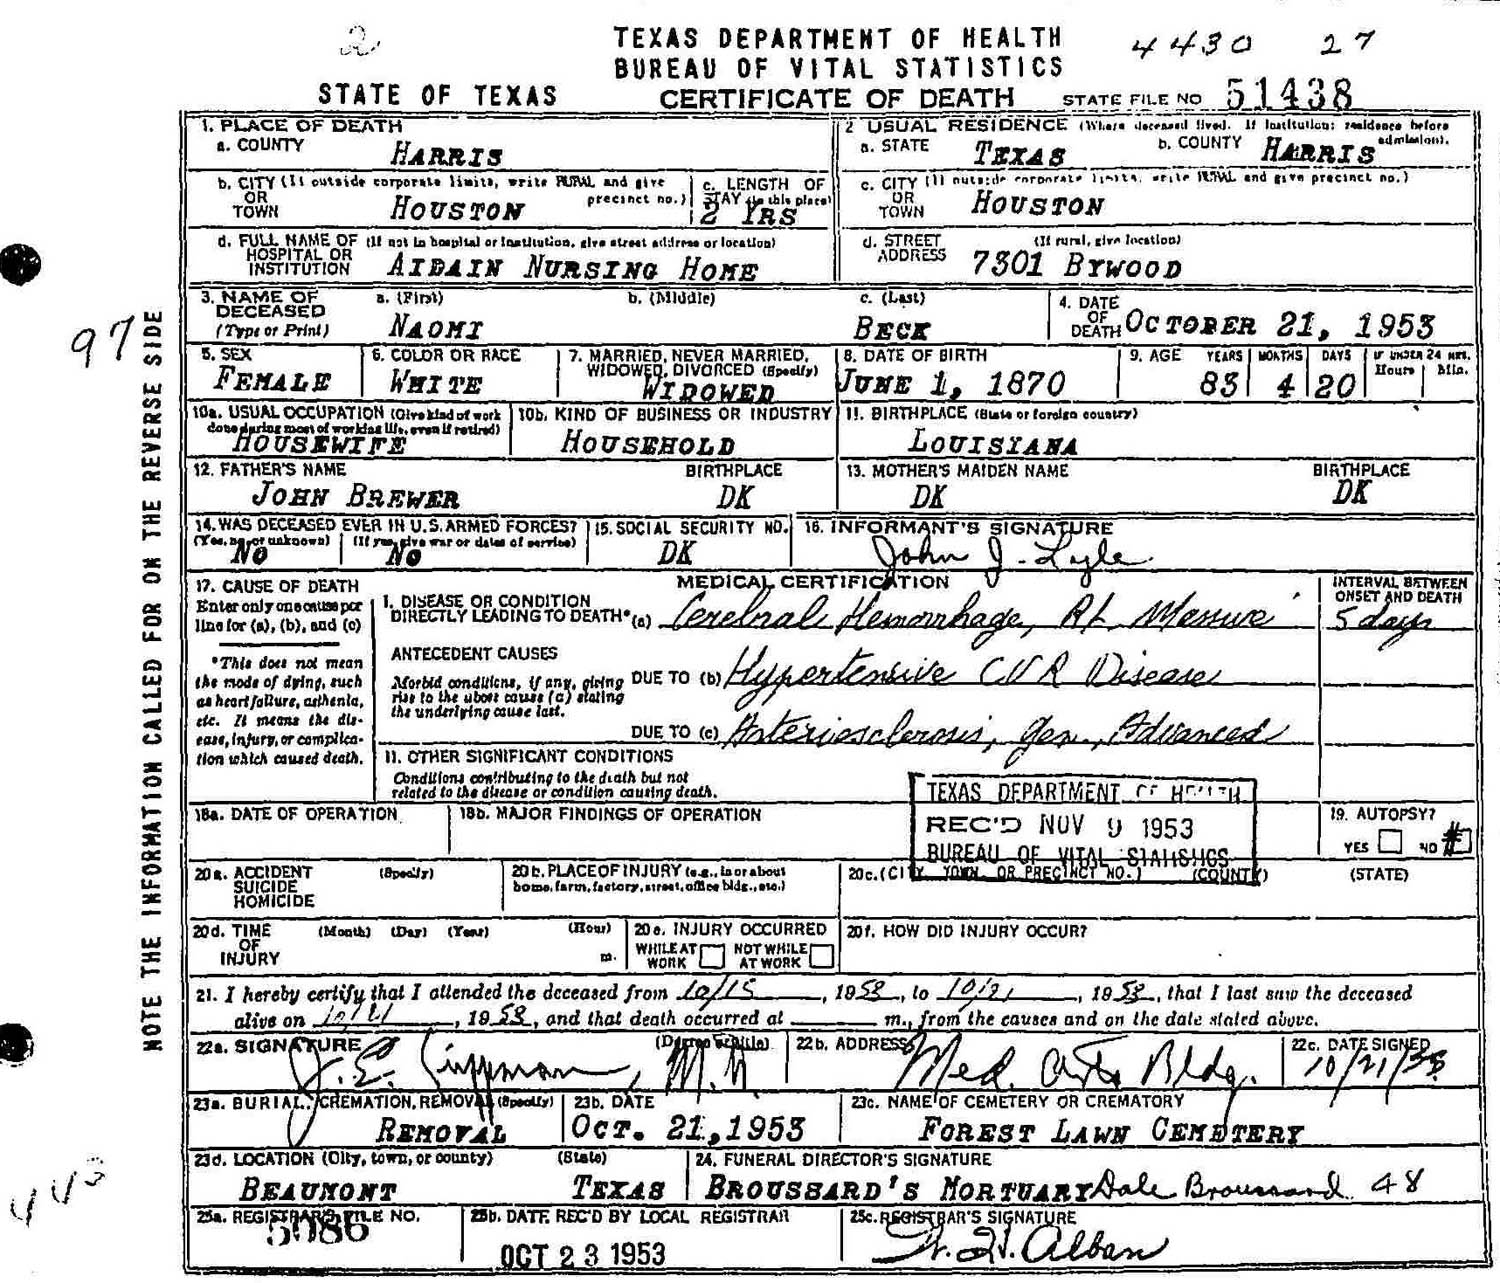 2
TEXAS DEPARTMENT OF HEALTH
BUREAU OF VITAL STATISTICS
4430 27
STATE OF TEXAS
CERTIFICATE OF DEATH
STATE FILE NO 51438
1. PLACE OF DEATH
a. COUNTY HARRIS
2 USUAL RESIDENCE (Where deceased lived. If institution: residence before admission).
a. STATE TEXAS b. COUNTY HARRIS
b. CITY (If outside corporate limits, write RURAL and give precinct no.) OR TOWN HOUSTON
c. LENGTH OF STAY (in this place) 2 YRS
c. CITY (If outside corporate limits, write RURAL and give precinct no.) OR TOWN HOUSTON
d. FULL NAME OF (If not in hospital or institution, give street address or location) HOSPITAL OR INSTITUTION AIDAIN NURSING HOME
d. STREET ADDRESS (If rural, give location) 7301 BYWOOD
3. NAME OF DECEASED (Type or Print) a. (First) NAOMI b. (Middle) c. (Last) BECK
4. DATE OF DEATH OCTOBER 21, 1953
5. SEX FEMALE
6. COLOR OR RACE WHITE
7. MARRIED, NEVER MARRIED, WIDOWED, DIVORCED (Specify) WIDOWED
8. DATE OF BIRTH JUNE 1, 1870
9. AGE YEARS 83 MONTHS 4 DAYS 20 IF UNDER 24 HRS. Hours Min.
10a. USUAL OCCUPATION (Give kind of work done during most of working life, even if retired) HOUSEWIFE
10b. KIND OF BUSINESS OR INDUSTRY HOUSEHOLD
11. BIRTHPLACE (State or foreign country) LOUISIANA
12. FATHER'S NAME JOHN BREWER BIRTHPLACE DK
13. MOTHER'S MAIDEN NAME DK BIRTHPLACE DK
14. WAS DECEASED EVER IN U.S. ARMED FORCES? (Yes, no, or unknown) NO (If yes, give war or dates of service) NO
15. SOCIAL SECURITY NO. DK
16. INFORMANT'S SIGNATURE John J. Lyle
17. CAUSE OF DEATH
Enter only one cause per line for (a), (b), and (c)
*This does not mean the mode of dying, such as heart failure, asthenia, etc. It means the disease, injury, or complication which caused death.
MEDICAL CERTIFICATION
INTERVAL BETWEEN ONSET AND DEATH
I. DISEASE OR CONDITION DIRECTLY LEADING TO DEATH* (a) Cerebral Hemorrhage, Rt. Massive 5 days
ANTECEDENT CAUSES
Morbid conditions, if any, giving rise to the above cause (a) stating the underlying cause last.
DUE TO (b) Hypertensive C V R Disease
DUE TO (c) Arteriosclerosis, gen., Advanced
II. OTHER SIGNIFICANT CONDITIONS
Conditions contributing to the death but not related to the disease or condition causing death.
TEXAS DEPARTMENT OF HEALTH
REC'D NOV 9 1953
BUREAU OF VITAL STATISTICS
18a. DATE OF OPERATION
18b. MAJOR FINDINGS OF OPERATION
19. AUTOPSY? YES NO
20a. ACCIDENT SUICIDE HOMICIDE (Specify)
20b. PLACE OF INJURY (e.g., in or about home, farm, factory, street, office bldg., etc.)
20c. (CITY, TOWN, OR PRECINCT NO.) (COUNTY) (STATE)
20d. TIME OF INJURY (Month) (Day) (Year) (Hour) m.
20e. INJURY OCCURRED WHILE AT WORK NOT WHILE AT WORK
20f. HOW DID INJURY OCCUR?
21. I hereby certify that I attended the deceased from 10/15, 1953, to 10/21, 1953, that I last saw the deceased
alive on 10/21, 1953, and that death occurred at m., from the causes and on the date stated above.
22a. SIGNATURE (Degree or title) J. E. M.D.
22b. ADDRESS Med. Arts Bldg.
22c. DATE SIGNED 10/21/53
23a. BURIAL, CREMATION, REMOVAL (Specify) REMOVAL
23b. DATE OCT. 21, 1953
23c. NAME OF CEMETERY OR CREMATORY FOREST LAWN CEMETERY
23d. LOCATION (City, town, or county) (State) BEAUMONT TEXAS
24. FUNERAL DIRECTOR'S SIGNATURE BROUSSARD'S MORTUARY Dale Broussard 48
25a. REGISTRAR'S FILE NO. 5086
25b. DATE REC'D BY LOCAL REGISTRAR OCT 23 1953
25c. REGISTRAR'S SIGNATURE W. H. Alban
NOTE THE INFORMATION CALLED FOR ON THE REVERSE SIDE
97
443